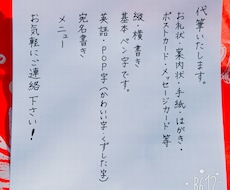 代筆いたします。
お礼状・案内状・手紙・はがき・
ポストカード・メッセージカード等
縦、横書き
基本ペン字です。
英語・POP字(かわいい字・くずした字)
メニュー
宛名書き
お気軽にご連絡下さい!